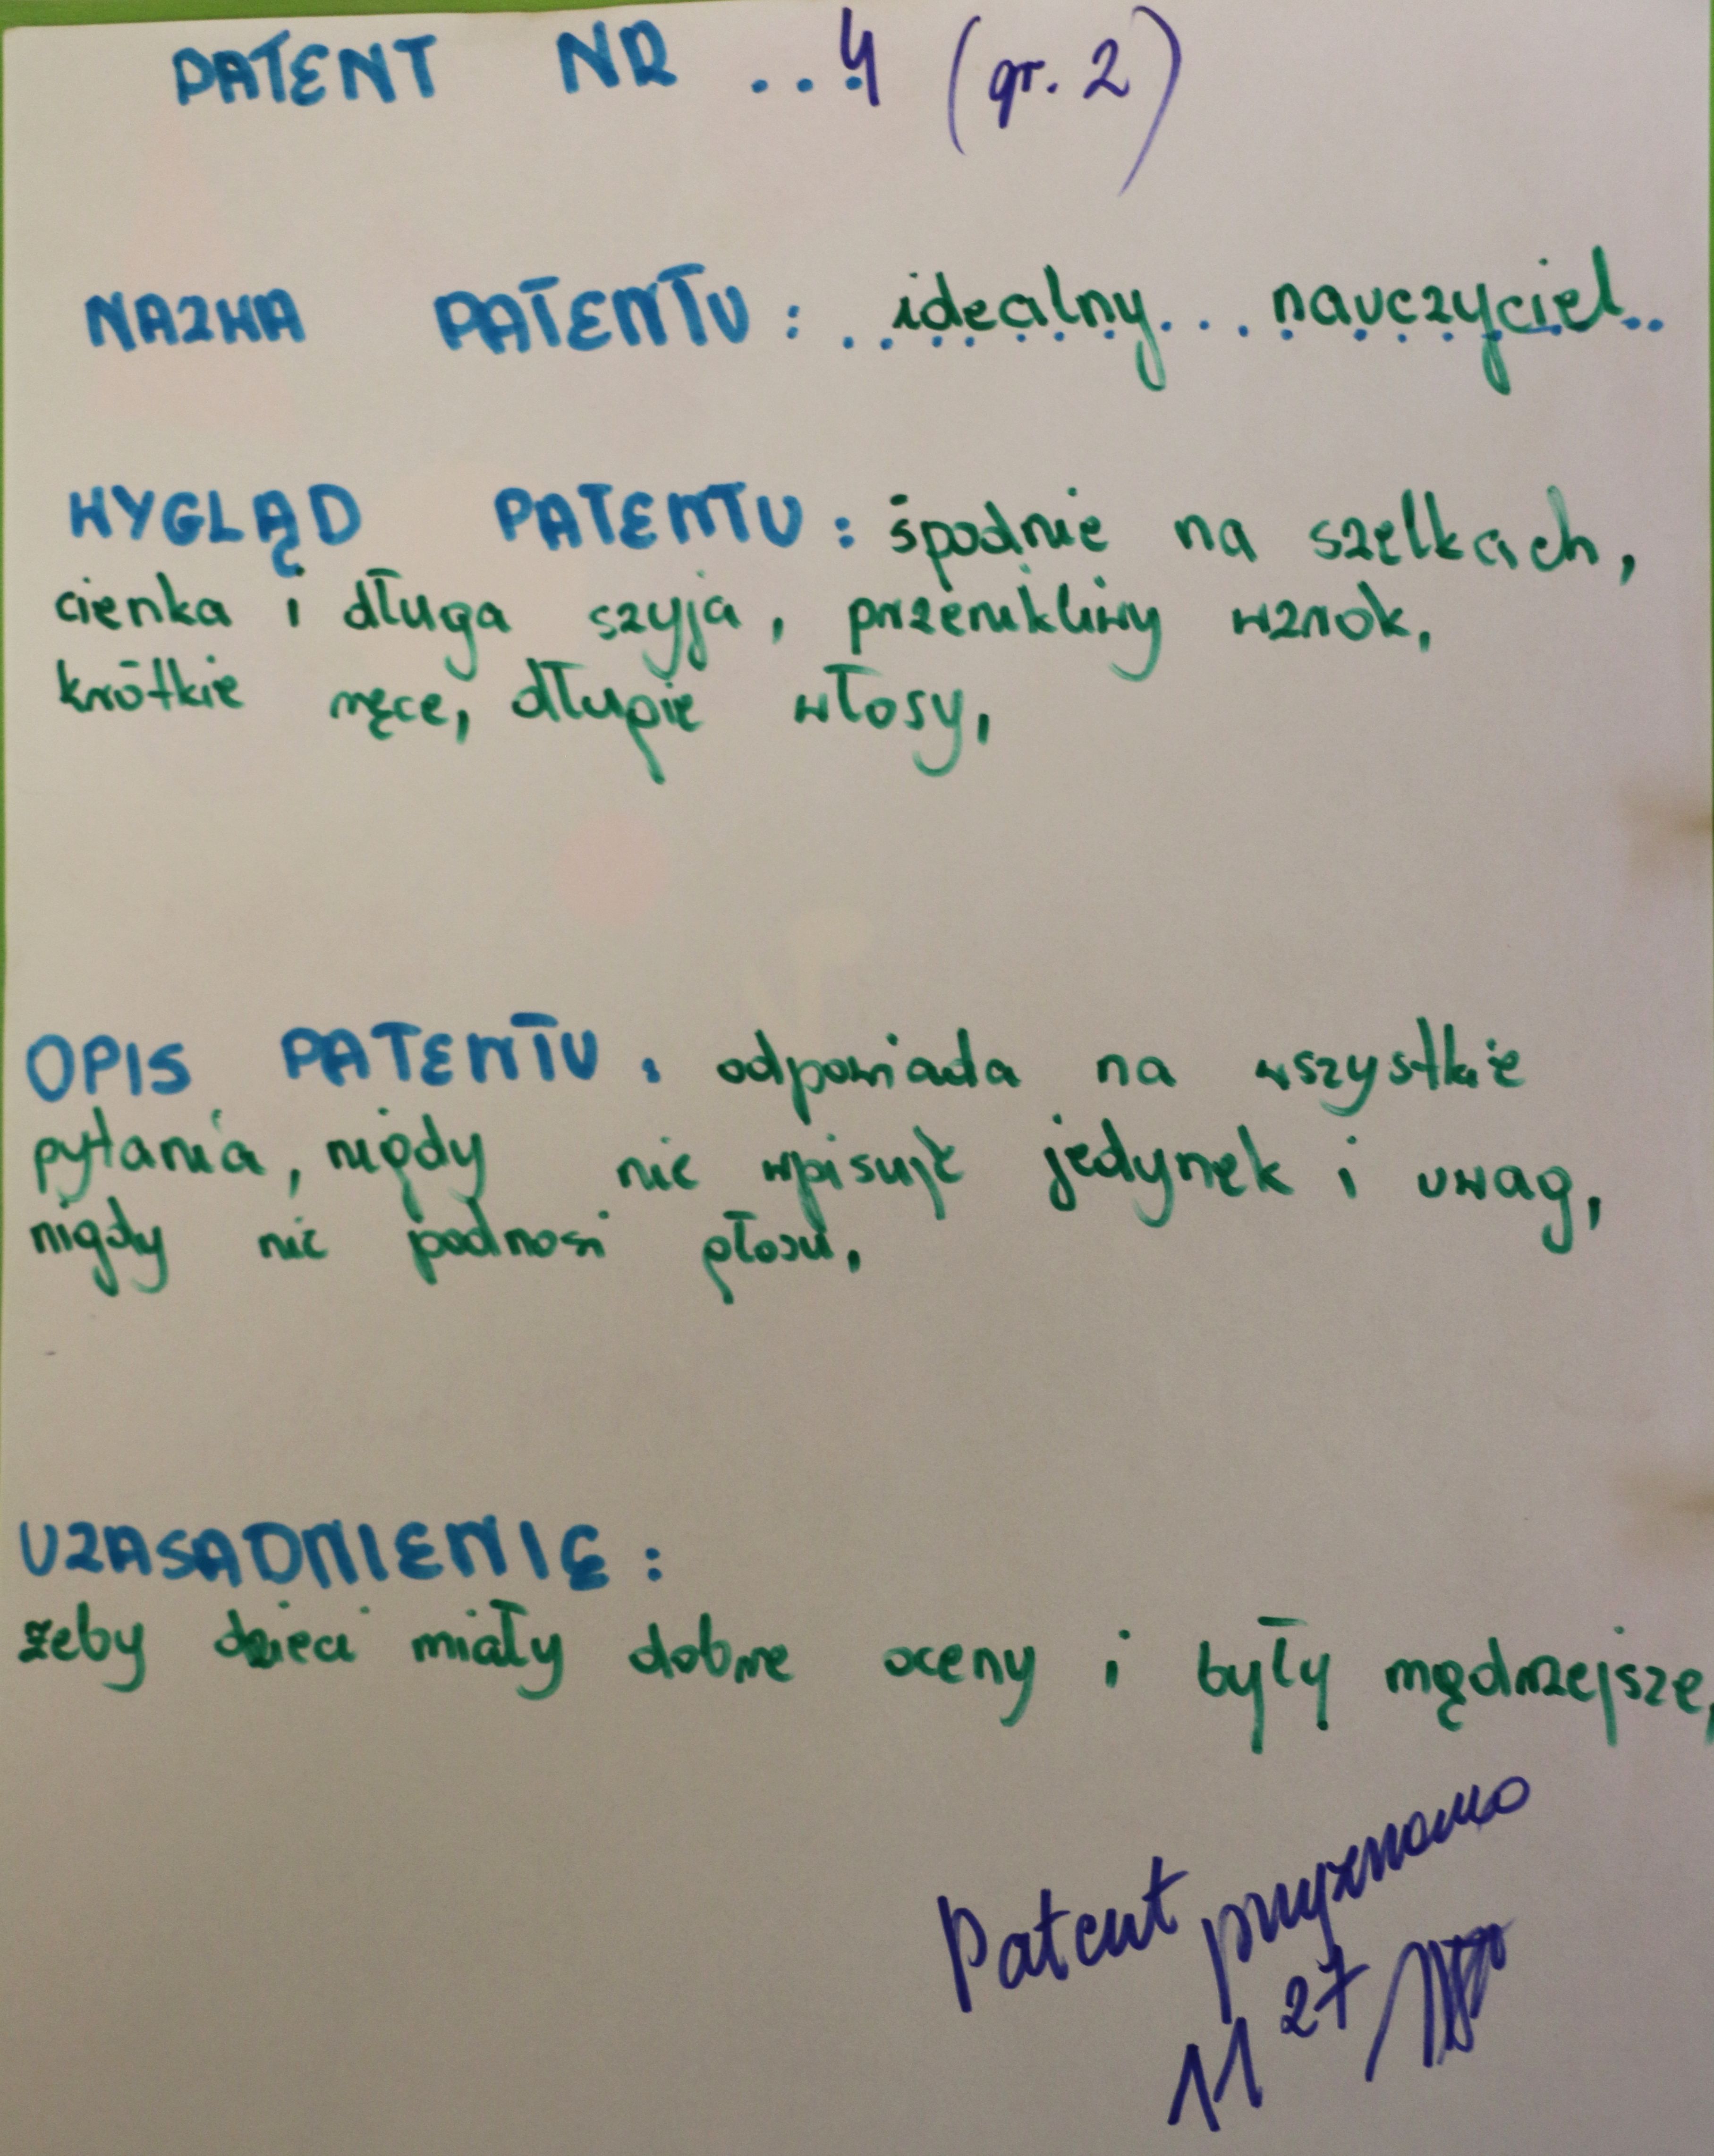 PATENT NR ...4 (gr. 2)
NAZWA PATENTU: ..idealny...nauczyciel..
WYGLĄD PATENTU: spodnie na szelkach,
cienka i długa szyja, przenikliwy wzrok,
krótkie ręce, długie włosy,
OPIS PATENTU: odpowiada na wszystkie
pytania, nigdy nie wpisuje jedynek i uwag,
nigdy nie podnosi głosu,
UZASADNIENIE:
żeby dzieci miały dobre oceny i były mądrzejsze,
Patent przyznano
11 27